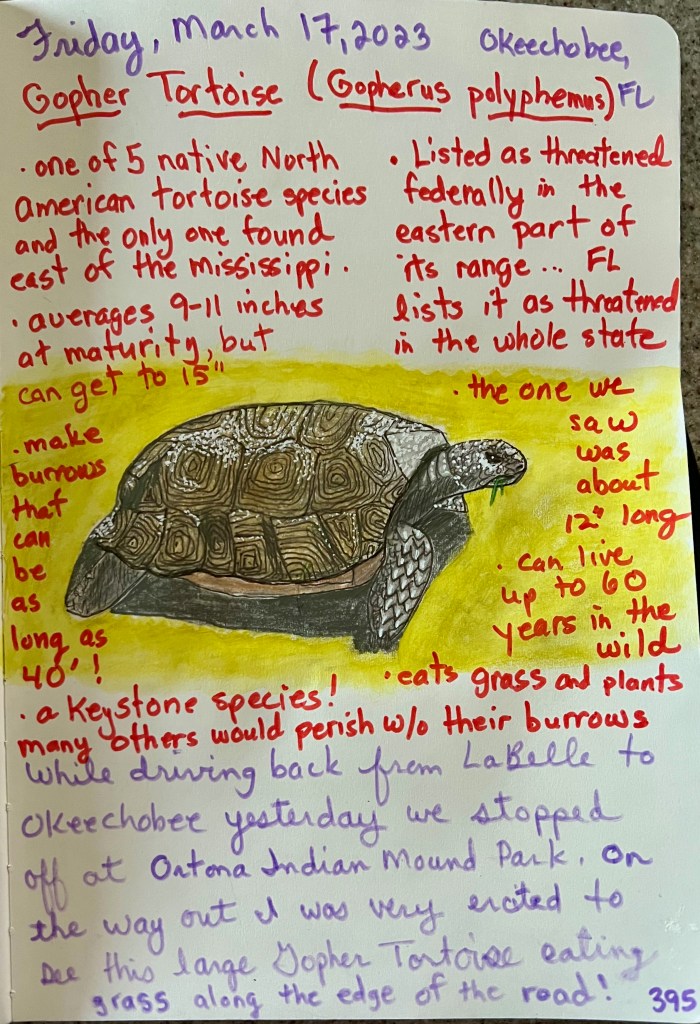 Friday, March 17, 2023 Okeechobee,
Gopher Tortoise (Gopherus polyphemus) FL
• one of 5 native North
American tortoise species
and the only one found
east of the Mississippi.
• averages 9-11 inches
at maturity, but
can get to 15"
• make
burrows
that
can
be
as
long as
40'!
• Listed as threatened
federally in the
eastern part of
its range... FL
lists it as threatened
in the whole state
• the one we
saw
was
about
12" long
• can live
up to 60
years in the
wild
• eats grass and plants
• a Keystone species!
many others would perish w/o their burrows
While driving back from LaBelle to
Okeechobee yesterday we stopped
off at Ortona Indian Mound Park. On
the way out I was very excited to
see this large Gopher Tortoise eating
grass along the edge of the road!
395